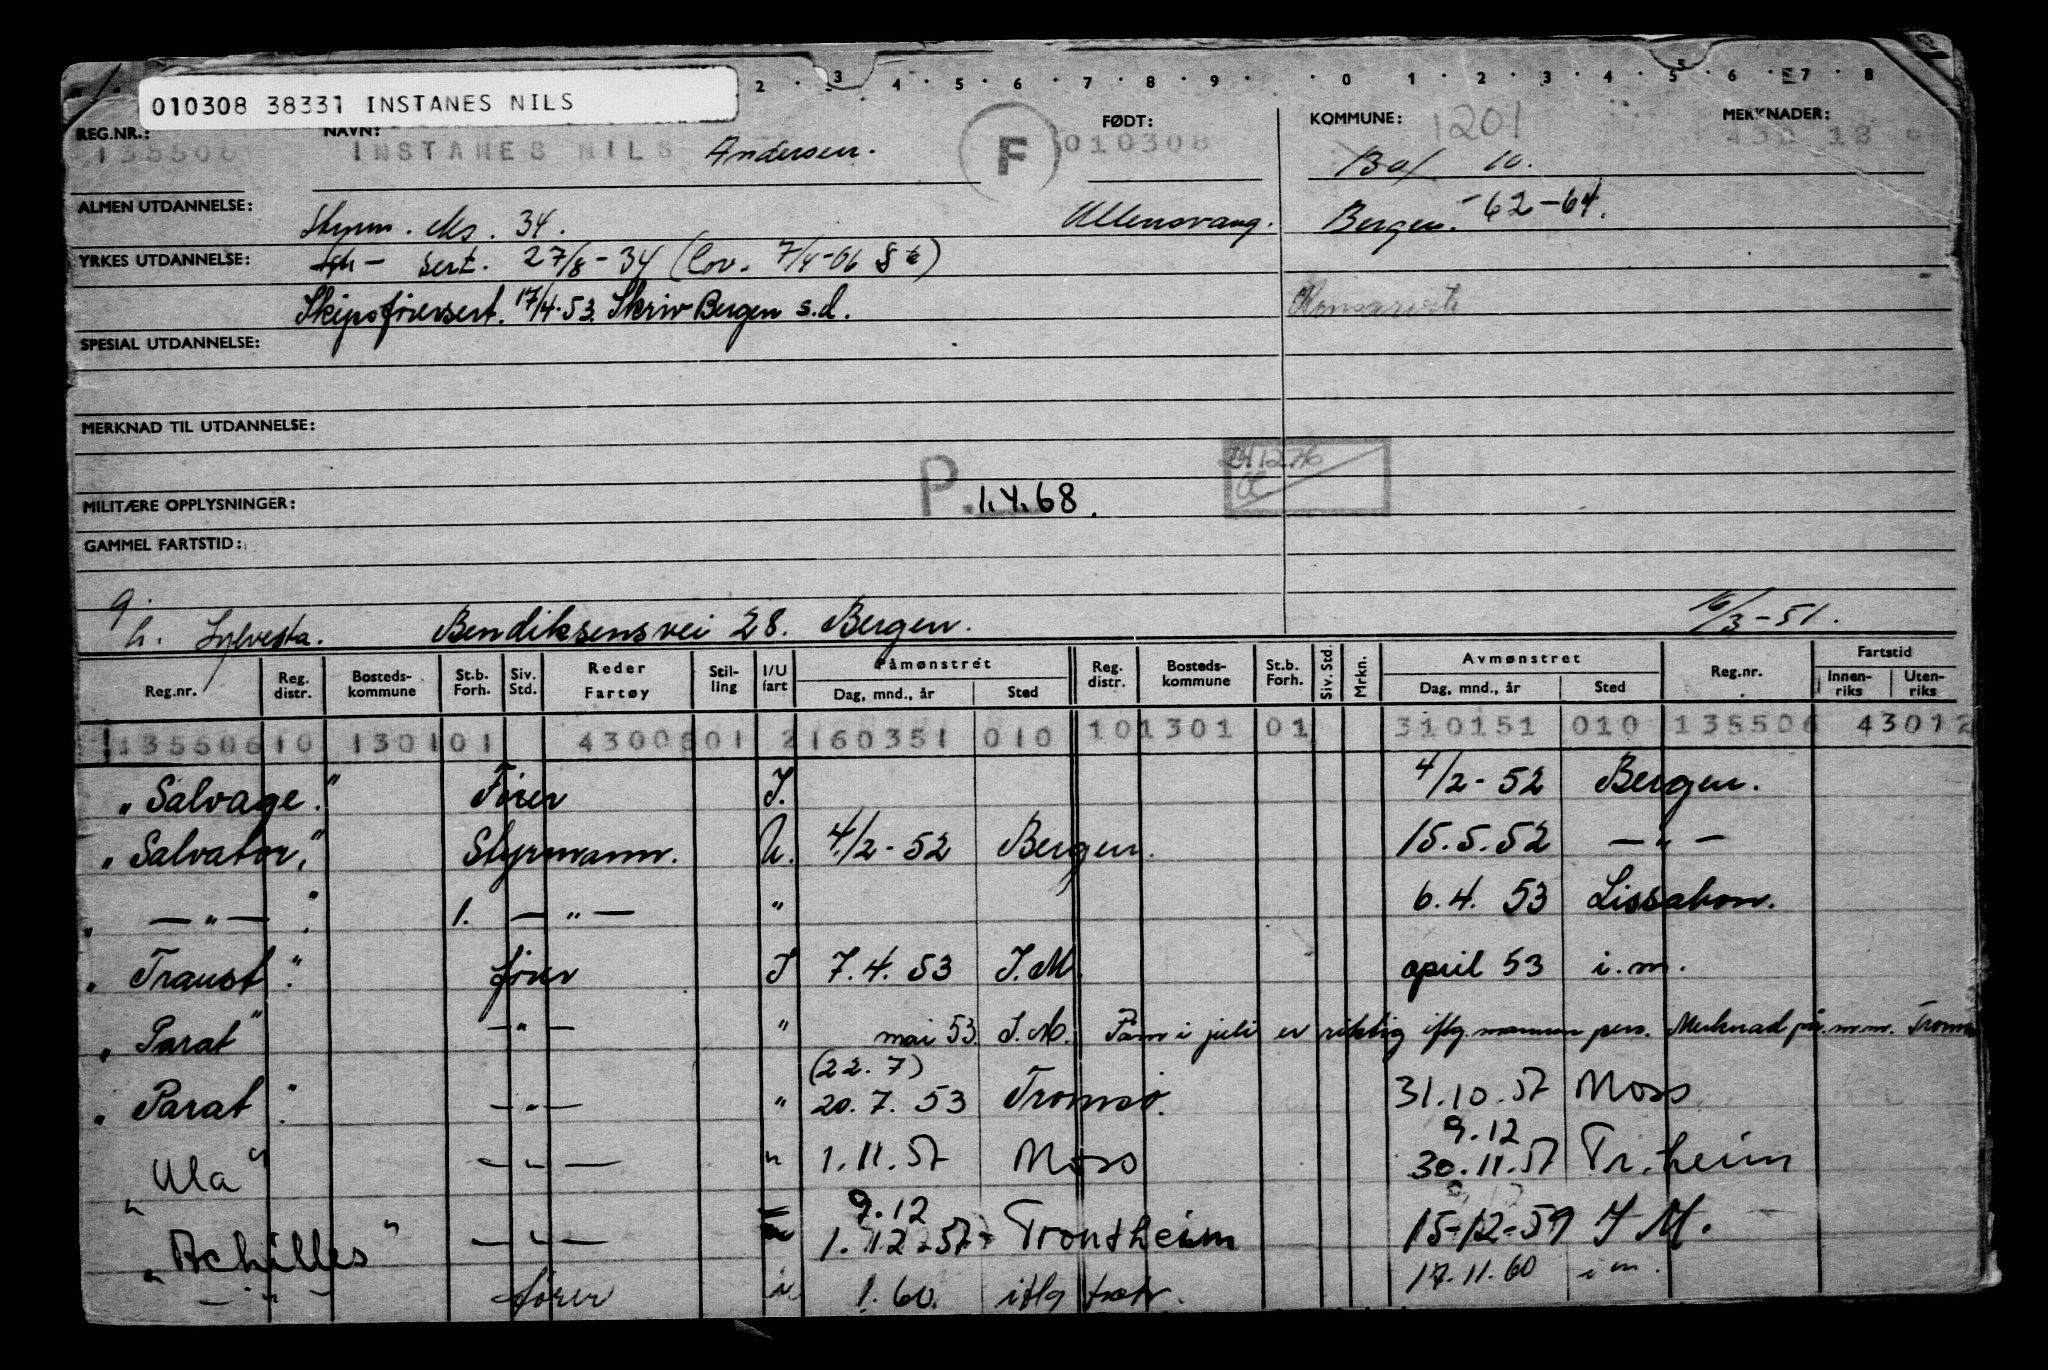 2 . 3 . 4 . 5 . 6 . 7 . 8 . 9 . . 0 . 1 . 2 . 3 . 4 . 5 . 6 . 7 . 8
010308 38331 INSTANES NILS
REG.NR.: NAVN: FØDT: KOMMUNE: 1201 MERKNADER:
135506 INSTANES NILS Andersen. F 010308 1301 10.
ALMEN UTDANNELSE: Styrm. eks. 34. Ullensvang. Bergen. -62-64.
YRKES UTDANNELSE: sert. 27/8-34 (Cov. 7/4-66
Skipsførersert. 17/4-53. Skriv Bergen s.d.
SPESIAL UTDANNELSE:
MERKNAD TIL UTDANNELSE:
P. 1.4.68.
MILITÆRE OPPLYSNINGER:
GAMMEL FARTSTID:
Sylvesta. Bendiksensvei 28. Bergen. 16/3-51.
Reg.nr. Reg. distr. Bosteds-kommune St.b. Forh. Siv. Std. Reder Fartøy Stil-ling I/U fart Påmønstret Dag, mnd., år Sted Reg. distr. Bosteds-kommune St.b. Forh. Siv. Std. Mrkn. Avmønstret Dag, mnd., år Sted Reg.nr. Fartstid Innen-riks Uten-riks
135506 10 1301 01 4300601 2 160351 010 10 1301 01 310151 010 135506 43012
"Salvage." Fører I. 4/2-52 Bergen.
"Salvator," Styrmann. U. 4/2-52 Bergen. 15.5.52 —"—
" —"— " 1. —"— " 6.4.53 Lissabon.
"Traust" fører I 7.4.53 I.M. april 53 i.m.
"Parat" —"— " mai 53. I.M. Påm i juli er riktig iflg. mannen pers. Merknad på m.m. Tromsø
(22.7)
"Parat" —"— " 20.7.53 Tromsø. 31.10.57 Moss
9.12
"Ula" —"— " 1.11.57 Moss 30.11.57 Tr.heim
9.12
"Achilles" —"— 1.12-57 Trontheim 15-12-59 I M.
—"— fører i 1.60. iflg 17.11.60 i m.